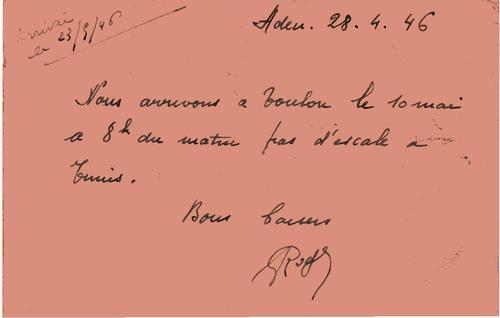 Aden. 28. 4. 46
arrivée
le 23/5/46
Nous arrivons a Toulon le 10 mai
a 8h du matin pas d'escale a
Tunis.
Bons baisers